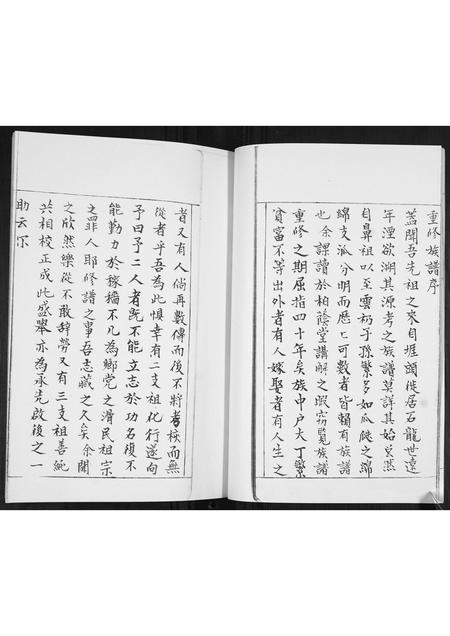 重修族譜序
蓋聞吾先祖之來自坭頭徙居石龍世遠
年湮欲溯其源考之族譜莫詳其始是然
自鼻祖以至雲礽子孫繁多如瓜瓞之綿
綿支派分明而歷歷可數者皆賴有族譜
也余課讀於柏蔭堂講解之暇窃覽族譜
重修之期屈指四十年矣族中户大丁繁
貧富不等出外者有人嫁娶者有人生之
者又有人倘再數傳而後不將考核而無
從者乎吾為此惧幸有二支祖化行遂向
予曰予二人者既不能立志於功名復不
能勤力於稼穡不几為鄉党之滑民祖宗
之罪人耶修譜之事吾志藏之久矣余聞
之欣然樂從不敢辞勞又有三支祖善純
共相校正成此盛舉亦為承先啟後之一
助云尔